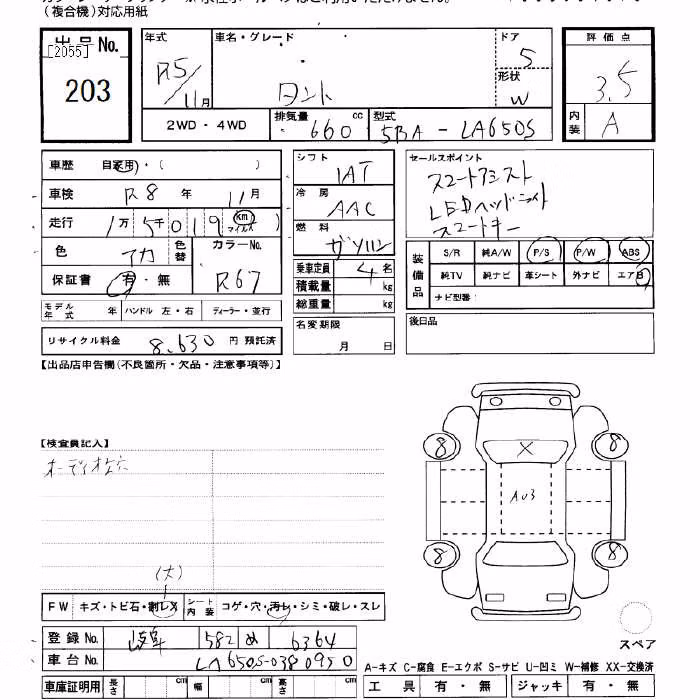 (複合機)対応用紙
出品No.
[2055]
203
年式
R5/11月
車名・グレード
タント
ドア
5
形状
W
評価点
3.5
内装
A
2WD・4WD
排気量 660 cc
型式 5BA-LA650S
車歴 自家用・( )
車検 R8年 11月
走行 1万5千019 km マイル
色 アカ
色替
カラーNo.
R67
保証書 有・無
シフト
IAT
冷房
AAC
燃料
ガソリン
乗車定員 4名
積載量 kg
総重量 kg
セールスポイント
スマートアシスト
LEDヘッドライト
スマートキー
装備品
S/R 純A/W P/S P/W ABS
純TV 純ナビ 革シート 外ナビ エアB
ナビ型番:
モデル年式 年 ハンドル 左・右 ディーラー・並行
名変期限
月 日
後日品
リサイクル料金 8,630 円 預託済
【出品店申告欄(不良箇所・欠品・注意事項等)】
【検査員記入】
8 X 8
A03
8 8
(大)
FW キズ・トビ石・割レX
シート内装 コゲ・穴・汚レ・シミ・破レ・スレ
登録No. 岐阜 582 め 6364
車台No. LA650S-0380950
スペア
A-キズ C-腐食 E-エクボ S-サビ U-凹ミ W-補修 XX-交換済
車庫証明用 長さ cm 幅 cm 高さ cm
工具 有・無 ジャッキ 有・無